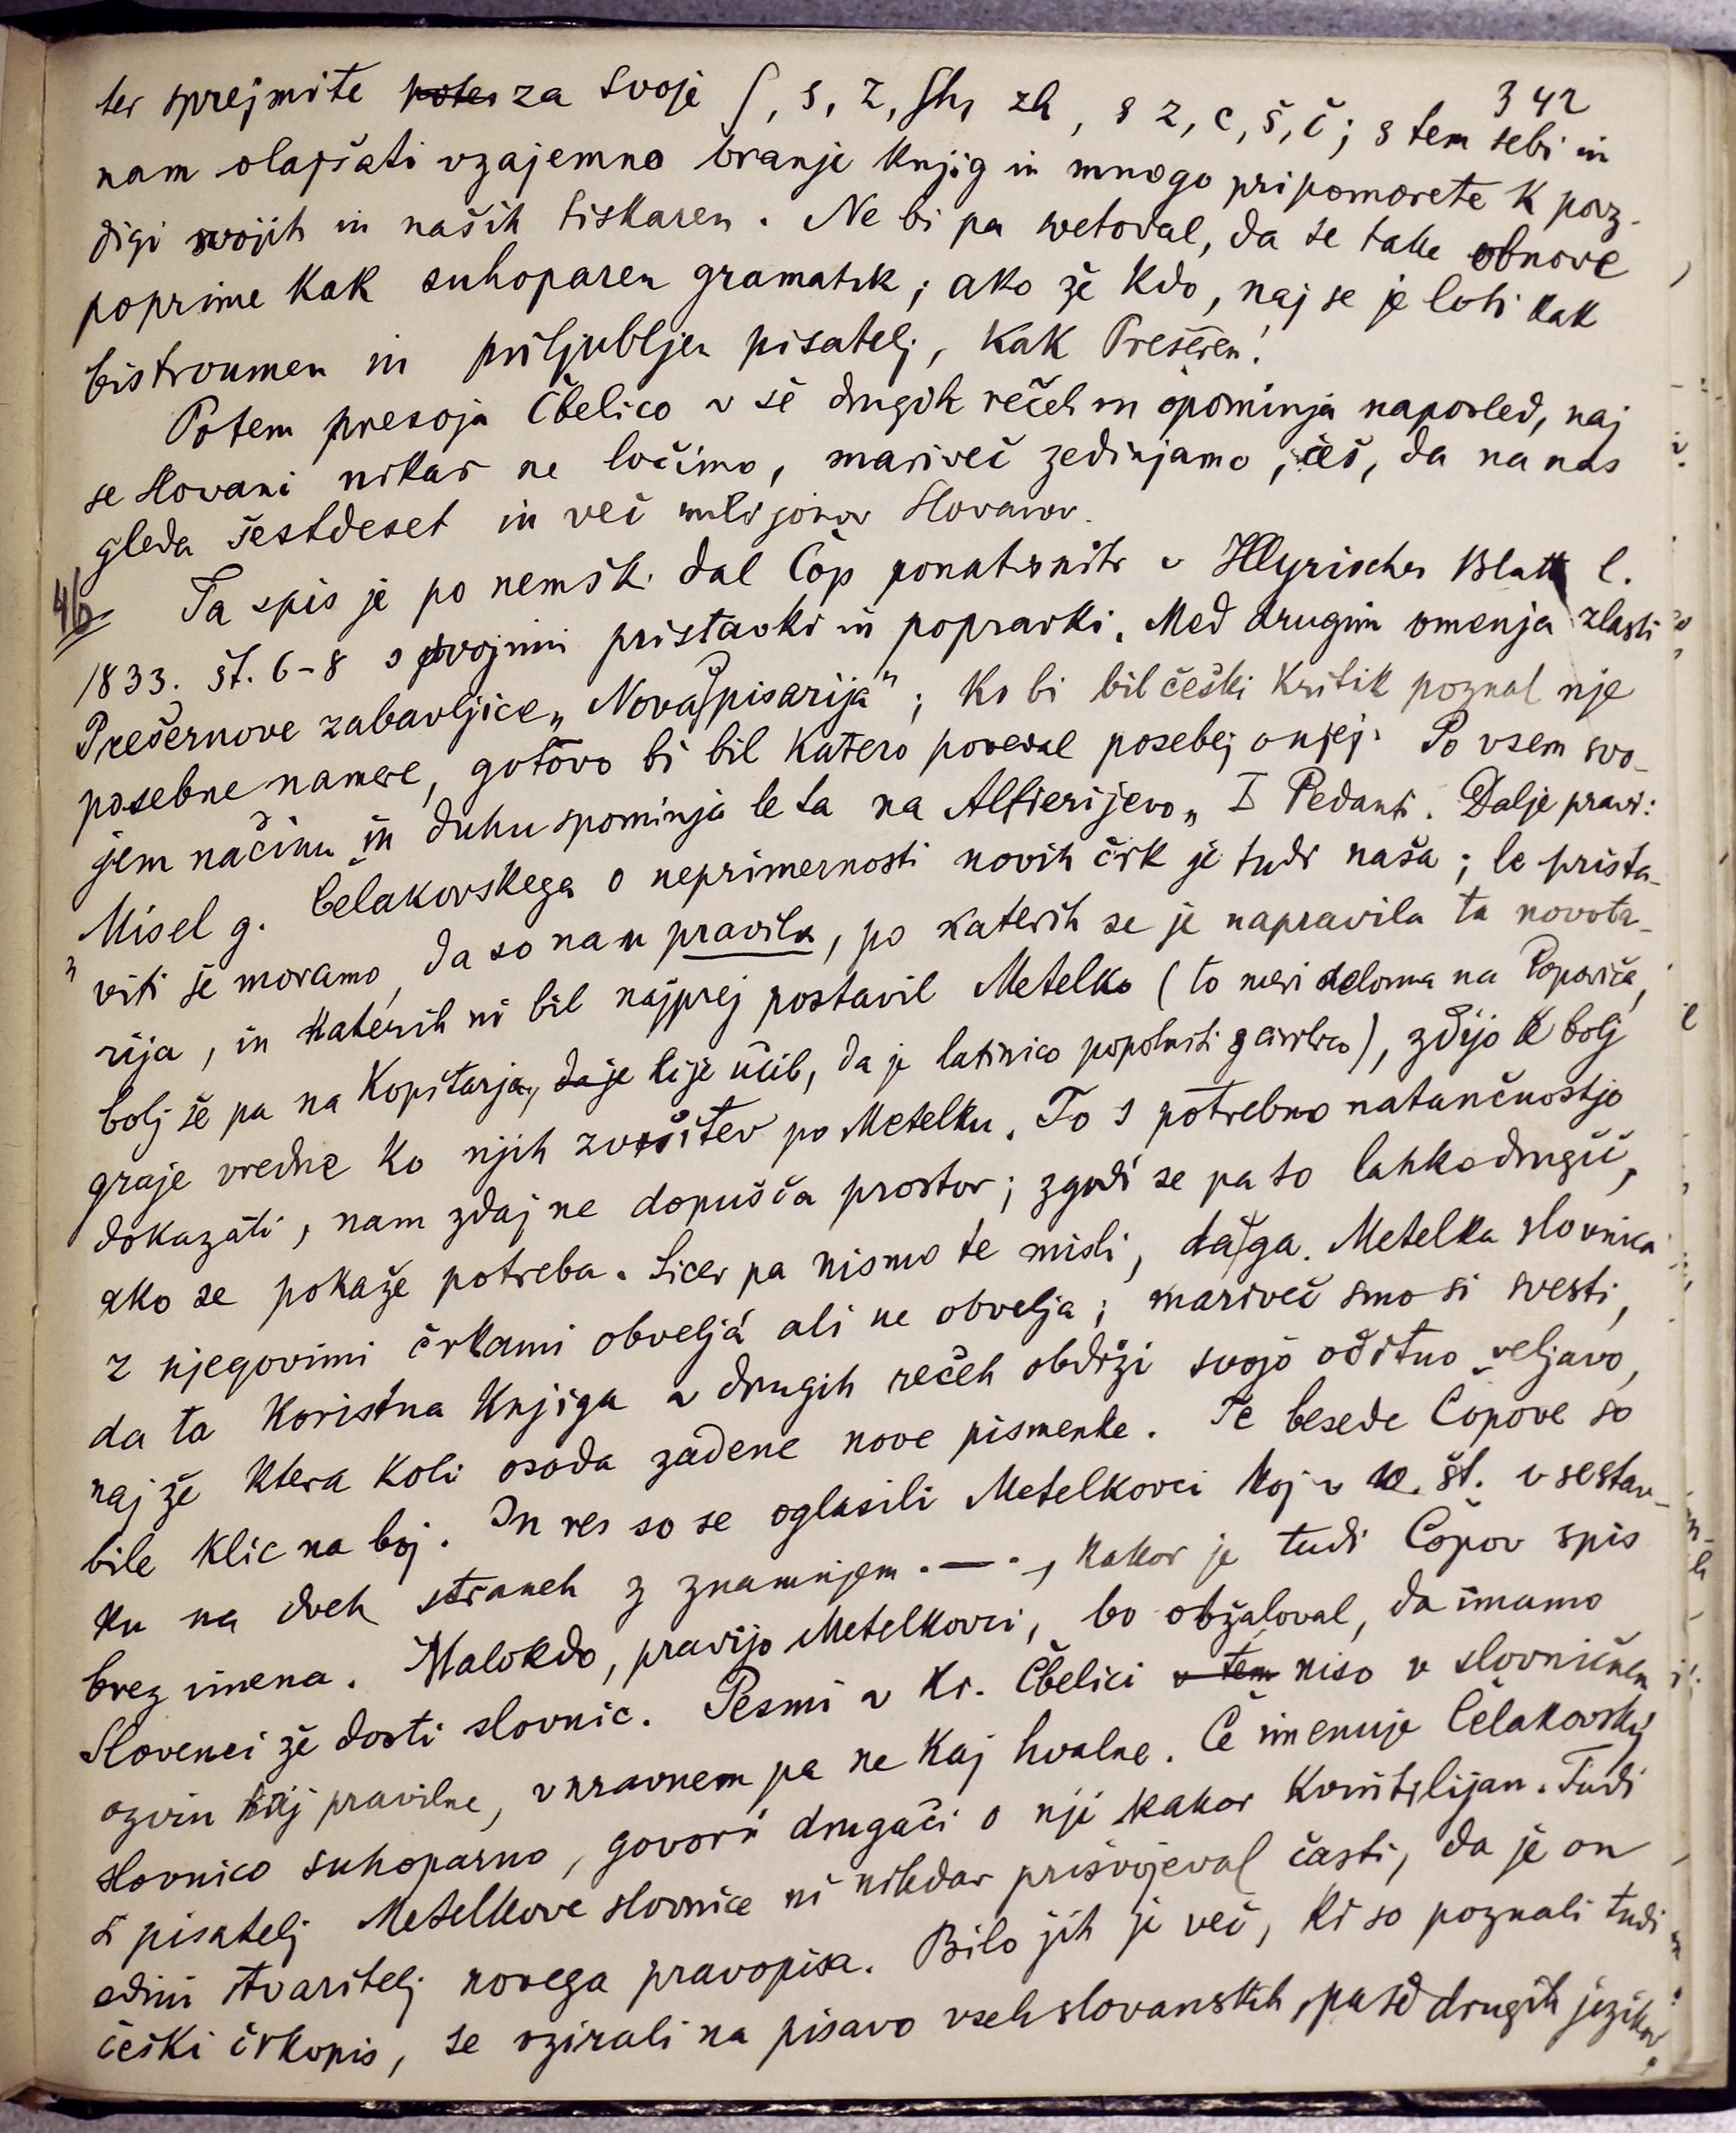 342
ter sprejmite potes za svoje ſ, s, z, ſh, zh, s z, c, š, č; s tem sebi in
nam olajšati vzajemno branje knjig in mnogo pripomorete k povz-
digi svojih in naših tiskaren. Ne bi pa svetoval, da se take obnove
poprime kak suhoparen gramatik; ako že kdo, naj se je loti kak
bistroumen in priljubljen pisatelj, kak Prešeren!
Potem presoja Čbelico v še drugih rečeh in opominja naposled, naj
se Slovani nikar ne ločimo, mariveč zedinjamo, češ, da na nas
gleda šestdeset in več milijonov Slovanov.
46 Ta spis je po nemšk. dal Čop ponatisniti v Illyrisches Blatt l.
1833. št. 6-8 s svojimi pristavki in popravki. Med drugim omenja zlasti
Prešernove zabavljice „Nova pisarija"; ko bi bil češki kritik poznal nje
posebne namere, gotovo bi bil katero povedal posebej o njej. Po vsem svo-
jem načinu in duhu spominja le ta na Alfierijevo „I Pedanti. Dalje pravi:
„Misel g. Čelakovskega o neprimernosti novih črk je tudi naša; le prista-
viti še moramo, da so nam pravila, po katerih se je napravila ta novota-
rija, in katerih ni bil najprej postavil Metelko (to meri deloma na Popoviča,
bolj še pa na Kopitarja, da je ki je učil, da je latinico popolniti s cirilico), zdijo še bolj
graje vredne ko njih zvršitev po Metelku. To s potrebno natančnostjo
dokazati, nam zdaj ne dopušča prostor; zgodi se pa to lahko drugič,
ako se pokaže potreba. Sicer pa nismo te misli, da g. Metelka slovnica
z njegovimi črkami obvelja ali ne obvelja; mariveč smo si svesti,
da ta koristna knjiga v drugih rečeh obdrži svojo očitno veljavo,
naj že ktera koli osoda zadene nove pismenke. Te besede Čopove so
bile klic na boj. In res so se oglasili Metelkovci koj v št. v sestav-
ku na dveh straneh z znamnjem . — ., kakor je tudi Čopov spis
brez imena. Malokdo, pravijo Metelkovci, bo obžaloval, da imamo
Slovenci že dosti slovnic. Pesmi v Kr. Čbelici v tem niso v slovničnem
ozviru kaj pravilne, v nravnem pa ne kaj hvalne. Če imenuje Čelakovsky
slovnico suhoparno, govori drugači o nji kakor Kvintilijan. Tudi
si pisatelj Metelkove slovnice ni nikdar prisvojeval časti, da je on
edini stvaritelj novega pravopisa. Bilo jih je več, ki so poznali tudi
češki črkopis, se ozirali na pisavo vseh slovanskih, pa še drugih jezikov.